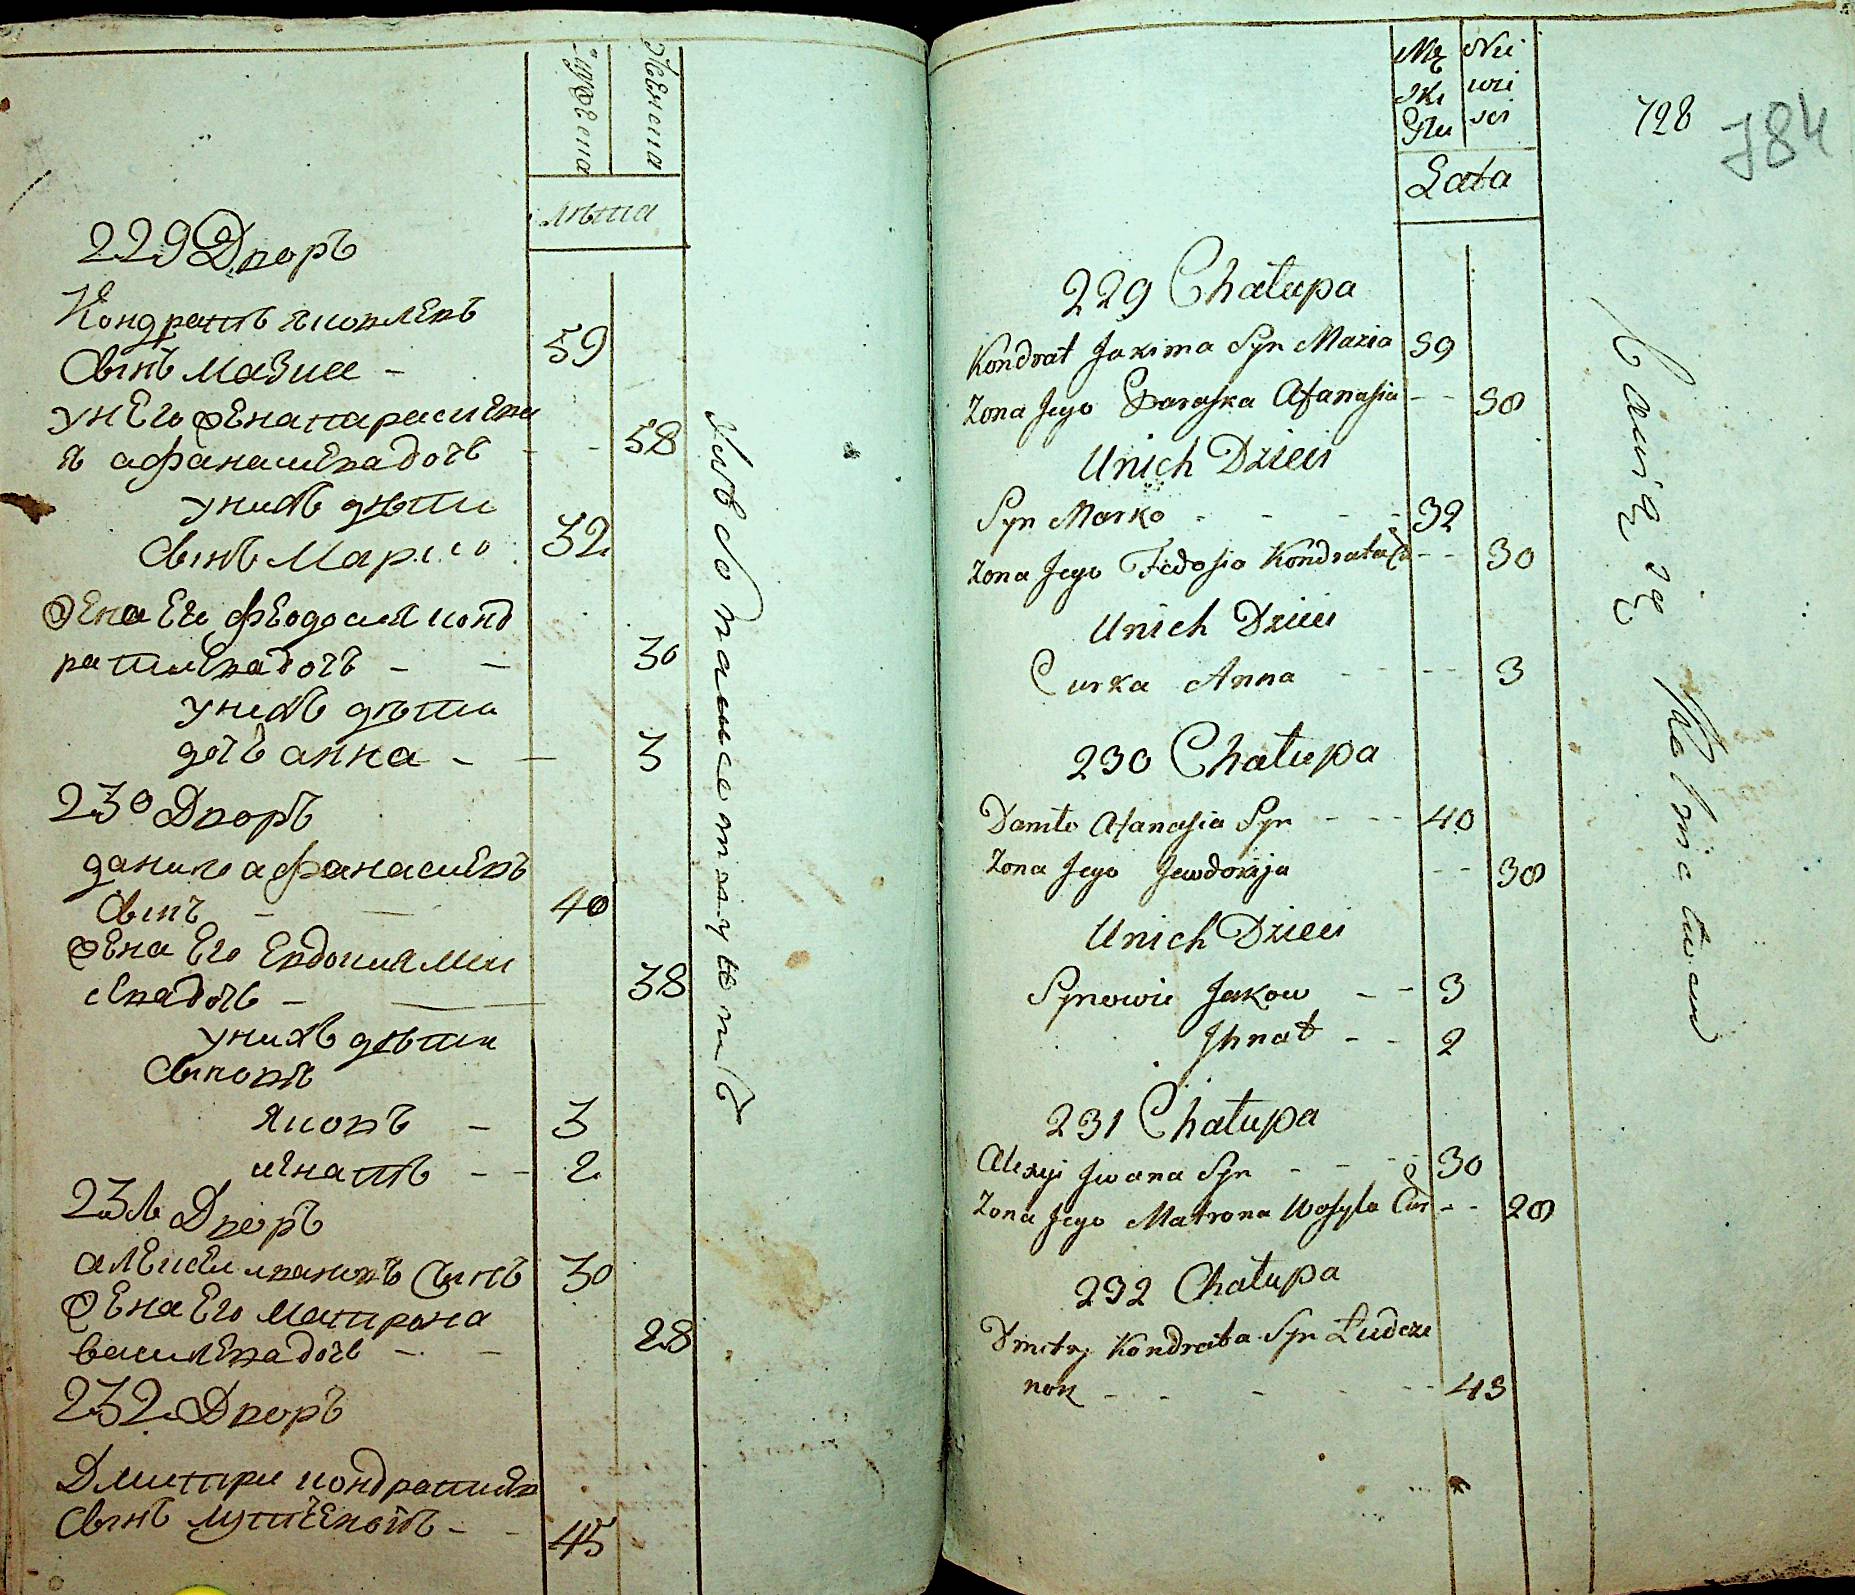 Мужеска
Женска
лѣта
229 Дворъ
Кондратъ яковлевъ
Сынъ мазие - 59
унего жена параскева
я афанасиева дочь - - 58
унихъ дѣти
Сынъ Марко 32
жена Его феодосия конд
ратиева дочь - - 30
унихъ дѣти
дочь анна - - 3
230 Дворъ
данило афанасиевъ
Сынъ - - 40
жена Его Евдокия
дочь - - 38
унихъ дѣти
Сыновя
яковъ - 3
игнатъ - - 2
231 Дворъ
алексеи ивановъ Сынъ 30
жена Его матрона
василева дочь - - 28
232 Дворъ
Дмитри кондратиев
Сынъ - - 45
Mę Nie
ski wie
Płci sci
Lata
728
784
229 Chałupa
Kondrat Jakima Syn Mazia 59
Zona Jego Paraska Afanasia - - 58
Unich Dzieci
Syn Marko - - - - 32
Zona Jego Fedosia Kondrata Cu - - 30
Unich Dzieci
Curka Anna - - - 3
230 Chałupa
Daniło Afanasia Syn - - - 40
Zona Jego Jewdokija - - 38
Unich Dzieci
Synowie Jakow - - 3
Ihnat - - 2
231 Chałupa
Alexyi Iwana Syn - - - - 30
Zona Jego Matrona Wasyla Cur - - 28
232 Chałupa
Dmitry Kondrata Syn Łudcze
nok - - - - - 45